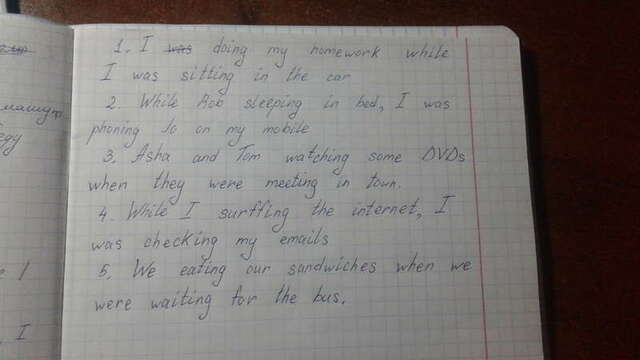 1. I was doing my homework while
I was sitting in the car
2. While Rob sleeping in bed, I was
phoning Jo on my mobile
3. Asha and Tom watching some DVDs
when they were meeting in town.
4. While I surffing the internet, I
was checking my emails
5. We eating our sandwiches when we
were waiting for the bus.
, I